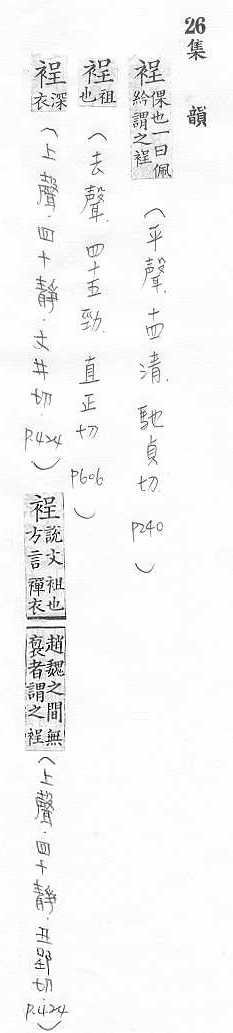 26
集韻
裎倮也一曰佩紟謂之裎(平聲.十四清.馳貞切.P240)
裎袒也(去聲.四十五勁.直正切P606)
裎深衣(上聲.四十靜.丈井切.P.424)
裎說文袒也方言襌衣趙魏之間無褎者謂之裎(上聲.四十靜.丑郢切.P.424)